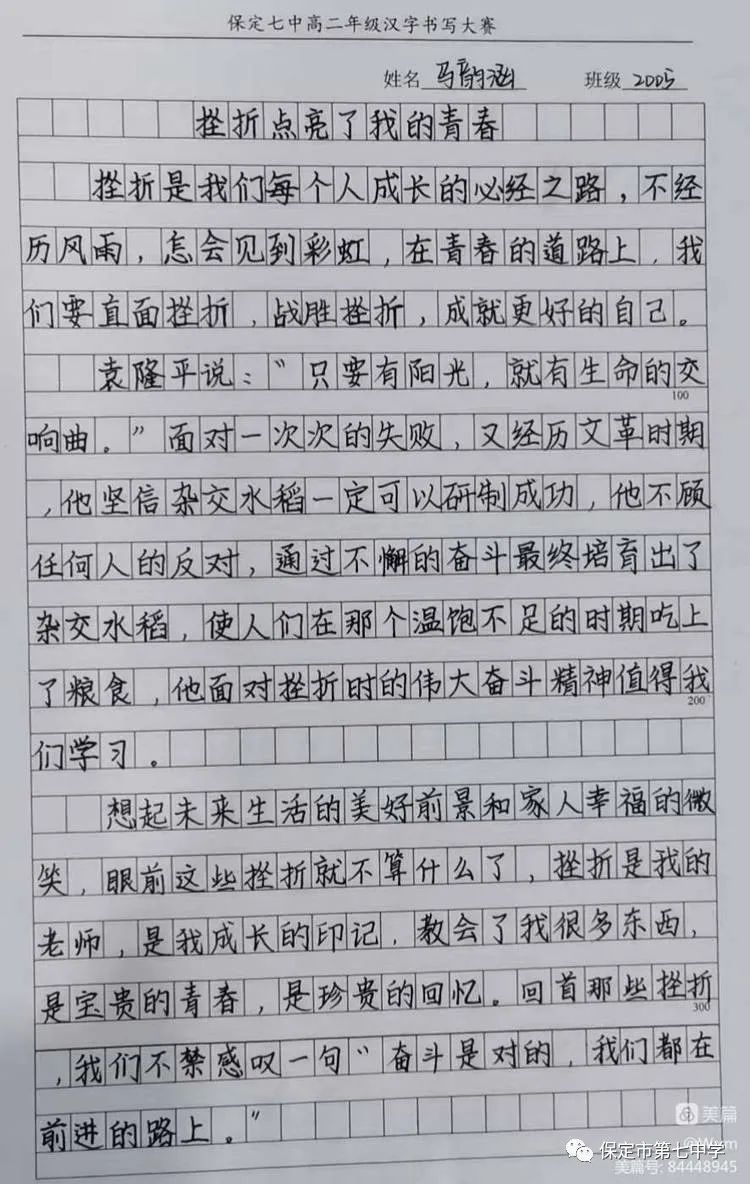 保定七中高二年级汉字书写大赛
姓名 马韵涵 班级 2005
挫折点亮了我的青春
挫折是我们每个人成长的必经之路，不经
历风雨，怎会见到彩虹，在青春的道路上，我
们要直面挫折，战胜挫折，成就更好的自己。
袁隆平说：“只要有阳光，就有生命的交
100
响曲。”面对一次次的失败，又经历文革时期
，他坚信杂交水稻一定可以研制成功，他不顾
任何人的反对，通过不懈的奋斗最终培育出了
杂交水稻，使人们在那个温饱不足的时期吃上
了粮食，他面对挫折时的伟大奋斗精神值得我
200
们学习。
想起未来生活的美好前景和家人幸福的微
笑，眼前这些挫折就不算什么了，挫折是我的
老师，是我成长的印记，教会了我很多东西，
是宝贵的青春，是珍贵的回忆。回首那些挫折
300
，我们不禁感叹一句“奋斗是对的，我们都在
前进的路上。”
美篇
@Wxm
保定市第七中学
美篇号: 84448945